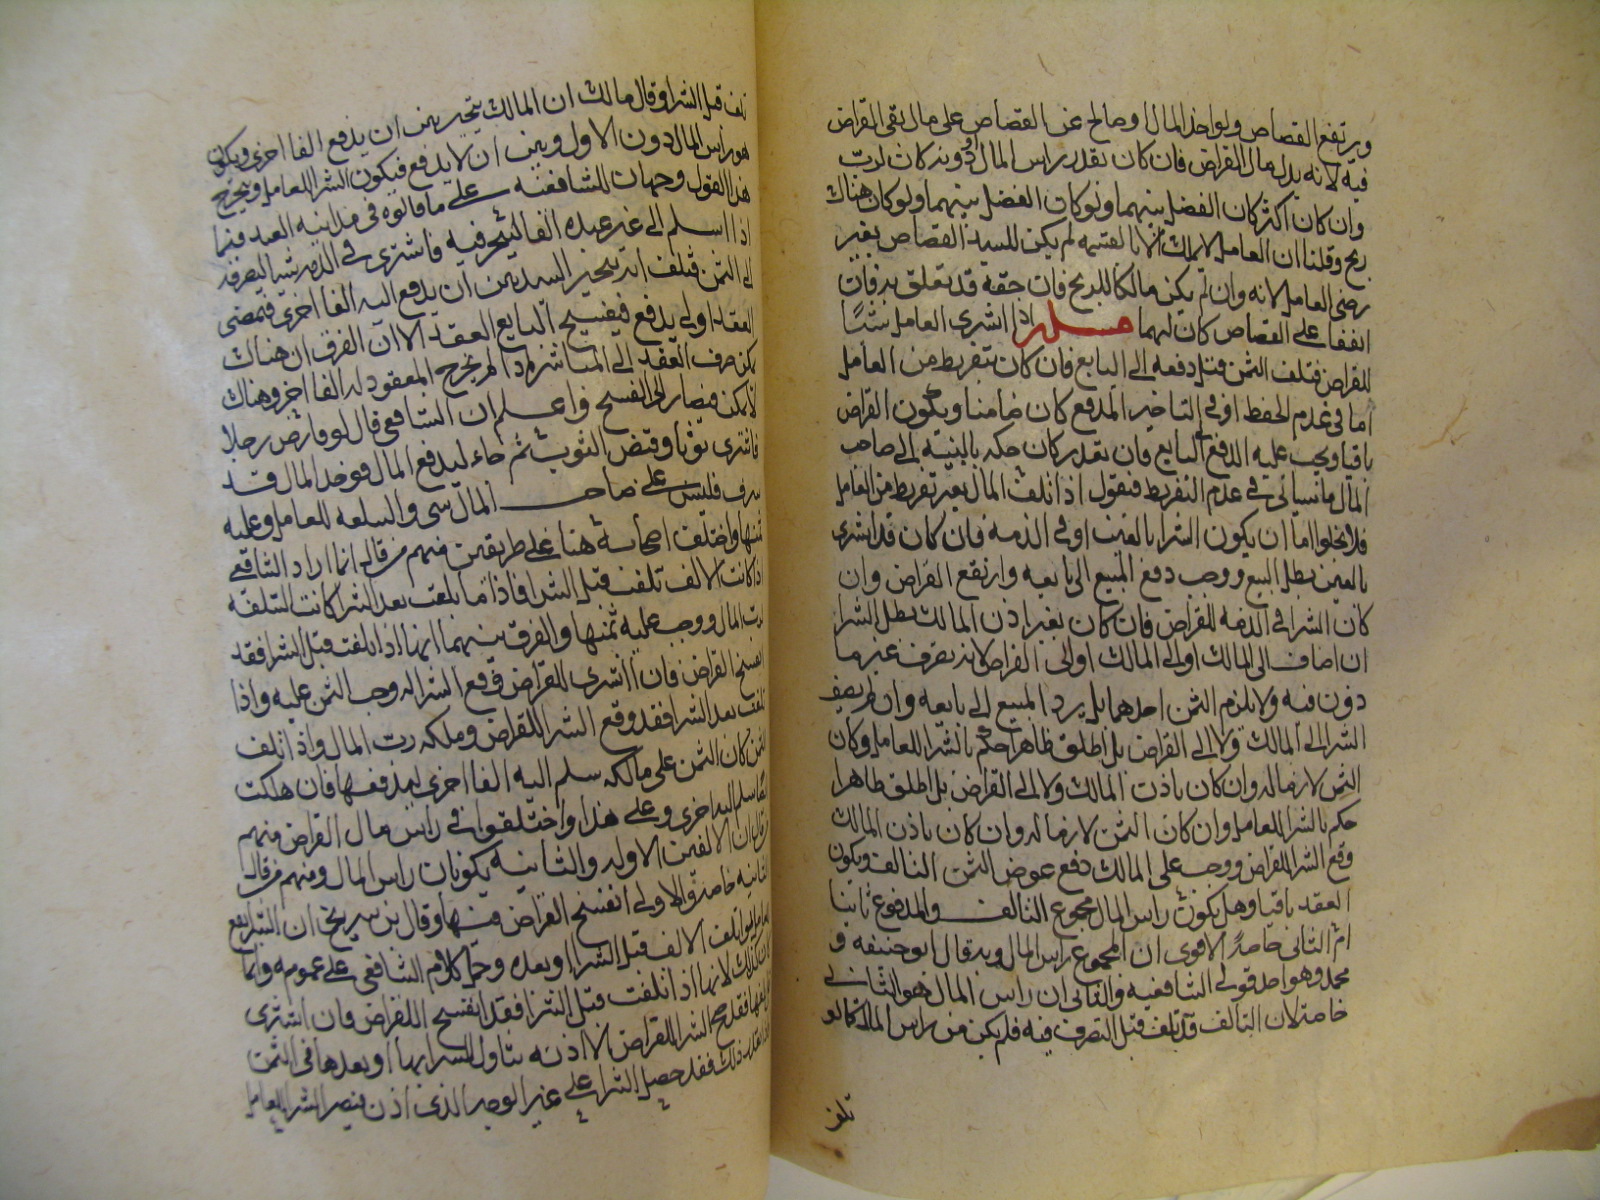 ويرتفع القصاص ويواخذ المال او صالح عن القصاص على مال بقى القراض
فيه لانه بدل مال القراض فان كان بقدر راس المال او دونه كان لرب
وان كان اكثر كان الفضل بينهما ولو كان الفضل بينهما ولو كان هناك
ربح وقلنا ان العامل لا يملك الا بالقسمه لم يكن للسيد القصاص بغير
رضى العامل لانه وان لم يكن مالكا للربح فان حقه قد تعلق به فان
اتفقا على القصاص كان لهما مسله اذا اشترى العامل شيئا
للقراض فتلف الثمن قبل دفعه الى البايع فان كان بتفريط من العامل
اما في عدم الحفظ او في التاخير المدفع كان ضامنا ويكون القراض
باقيا ويجب عليه الدفع الى البايع فان تعذر كان حكمه بالنسبه الى صاحب
المال ما سياتي في عدم التفريط فنقول اذا تلف المال بغير تفريط من العامل
فلا يخلو اما ان يكون الشرا بالعين او في الذمه فان كان قد اشترى
بالعين بطل البيع ووجب دفع المبيع الى بايعه وارتفع القراض وان
كان الشرا في الذمه للقراض فان كان بغير اذن المالك بطل الشرا
ان اضاف الى المالك او الى المالك او الى القراض لانه تصرف غير ما
دون فيه ولا يلزم الثمن احدهما بل يرد المبيع الى بايعه وان لم يضف
الشرا الى المالك ولا الى القراض بل اطلق ظاهرا حكم بالشرا للعامل وكان
الثمن لازما له وان كان باذن المالك ولا الى القراض بل اطلق ظاهرا
حكم بالشرا للعامل وان كان الثمن لازما له وان كان باذن المالك
وقع الشرا للقراض ووجب على المالك دفع عوض الثمن التالف ويكون
العقد باقيا وهل يكون راس المال مجموع التالف والمدفوع ثانيا
ام الثاني خاصه الاقوى ان المجموع راس المال وبه قال ابو حنيفه و
محمد وهو احد قولي الشافعيه والثاني ان راس المال هو الثاني
خاصه لان التالف قد تلف قبل التصرف فيه فلم يكن من راس المال كما لو
تلف
تلف قبل الشرا وقال مالك ان المالك يتخير بين ان يدفع الفا اخرى ويكون
هو راس المال دون الاول وبين ان لا يدفع فيكون الشرا للعامل ويخرج
هذا القول وجهان للشافعيه على ما قالوه في مداينه العبد فيما
اذا سلم الى عبده الفا ليتجر فيه فاشترى في الذمه شيا ليصرفه
الى الثمن فتلف انه يتخير السيد بين ان يدفع اليه الفا اخرى فيمضى
العقد او لا يدفع فيفسخ البايع العقد الا ان الفرق ان هناك
يمكن صرف العقد الى المباشر اذا لم يخرج المعقود له الفا اخر وهناك
لا يمكن فصار الى الفسخ واعلم ان الشافعي قال لو قارض رجلا
فاشترى ثوبا وقبض الثوب ثم جاء ليدفع المال فوجد المال قد
سرق فليس على صاحب المال شى والسلعه للعامل وعليه
ثمنها واختلف اصحابه هنا على طريقين فمنهم من قال انما اراد الشافعي
اذا كانت الالف تلفت قبل الشرا فاذا ما تلفت بعد الشرا كانت السلعه
لرب المال ووجب عليه ثمنها والفرق بينهما انها اذا تلفت قبل الشرا فقد
انفسخ القراض فان اشترى للقراض وقع الشرا له وجب الثمن عليه واذا
تلفت بعد الشرا فقد وقع الشرا للقراض وملكه رب المال واذا تلف
الثمن كان الثمن على مالكه سلم اليه الفا اخرى ليدفعها فان هلكت
ايضا سلم اليه اخرى وعلى هذا واختلفوا في راس مال القراض فمنهم
من قال ان الالفين الاوله والثانيه يكونان راس المال ومنهم من قال
الثانيه خاصه والاولى انفسخ القراض فيها وقال بن سريج ان الشرا يقع
للعامل سوا تلف الالف قبل الشرا او بعده وحمل كلام الشافعي على عمومه وانما
كان كذلك لانها اذا تلفت قبل الشرا فقد انفسخ القراض وان اشترى
فقد صح الشرا للقراض لان اذنه تناول الشرا بها او بعدها في الثمن
ذلك فقد حصل الشرا على غير الوجه الذي اذن فيصير الشرا للعامل